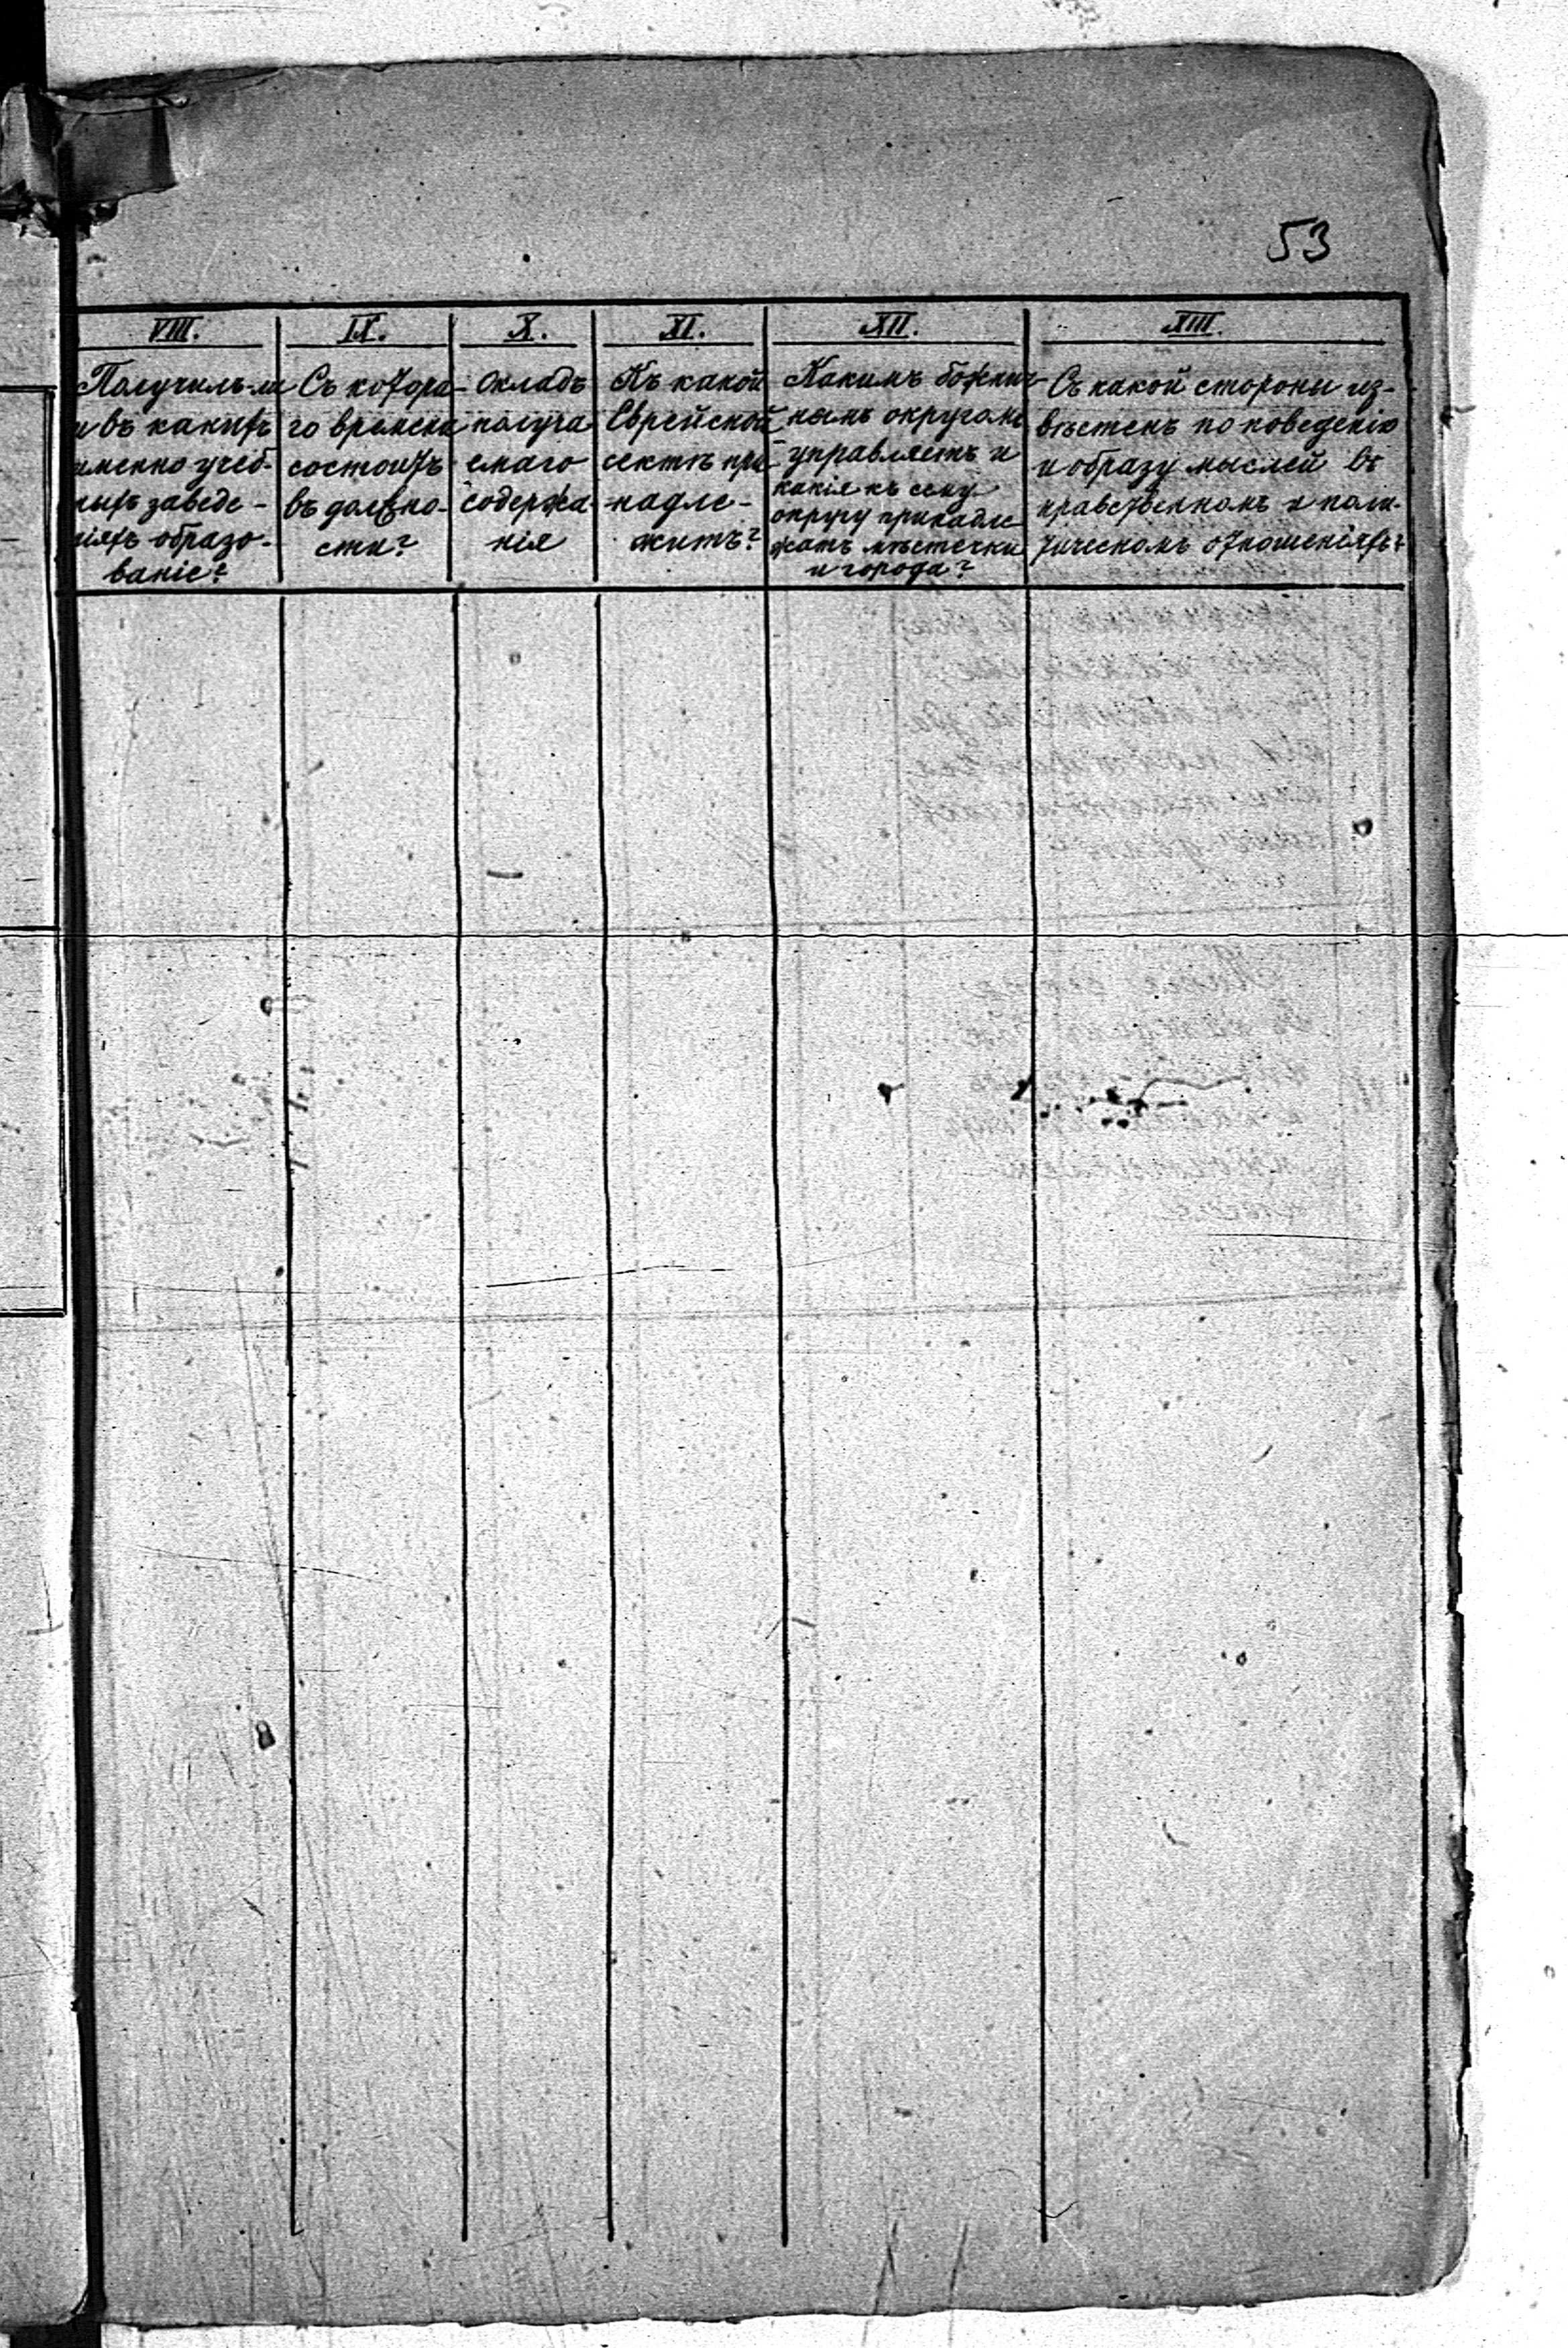 53
VIII.
Получилъ-ли
и въ какихъ
именно учеб-
ныхъ заведе-
ніяхъ образо-
ваніе?
IX.
Съ котора-
го времени
состоитъ
въ должно-
сти?
X.
Окладъ
получа
емаго
содержа-
нія
XI.
Къ какой
Еврейской
сектѣ при-
надле-
житъ?
XII.
Какимъ божнич-
нымъ округомъ
управляетъ и
какія къ сему
округу принадле-
жатъ мѣстечки
и города?
XIII.
Съ какой стороны из-
вѣстенъ по поведенію
и образу мыслей въ
нравственномъ и поли-
тическомъ отношеніяхъ?